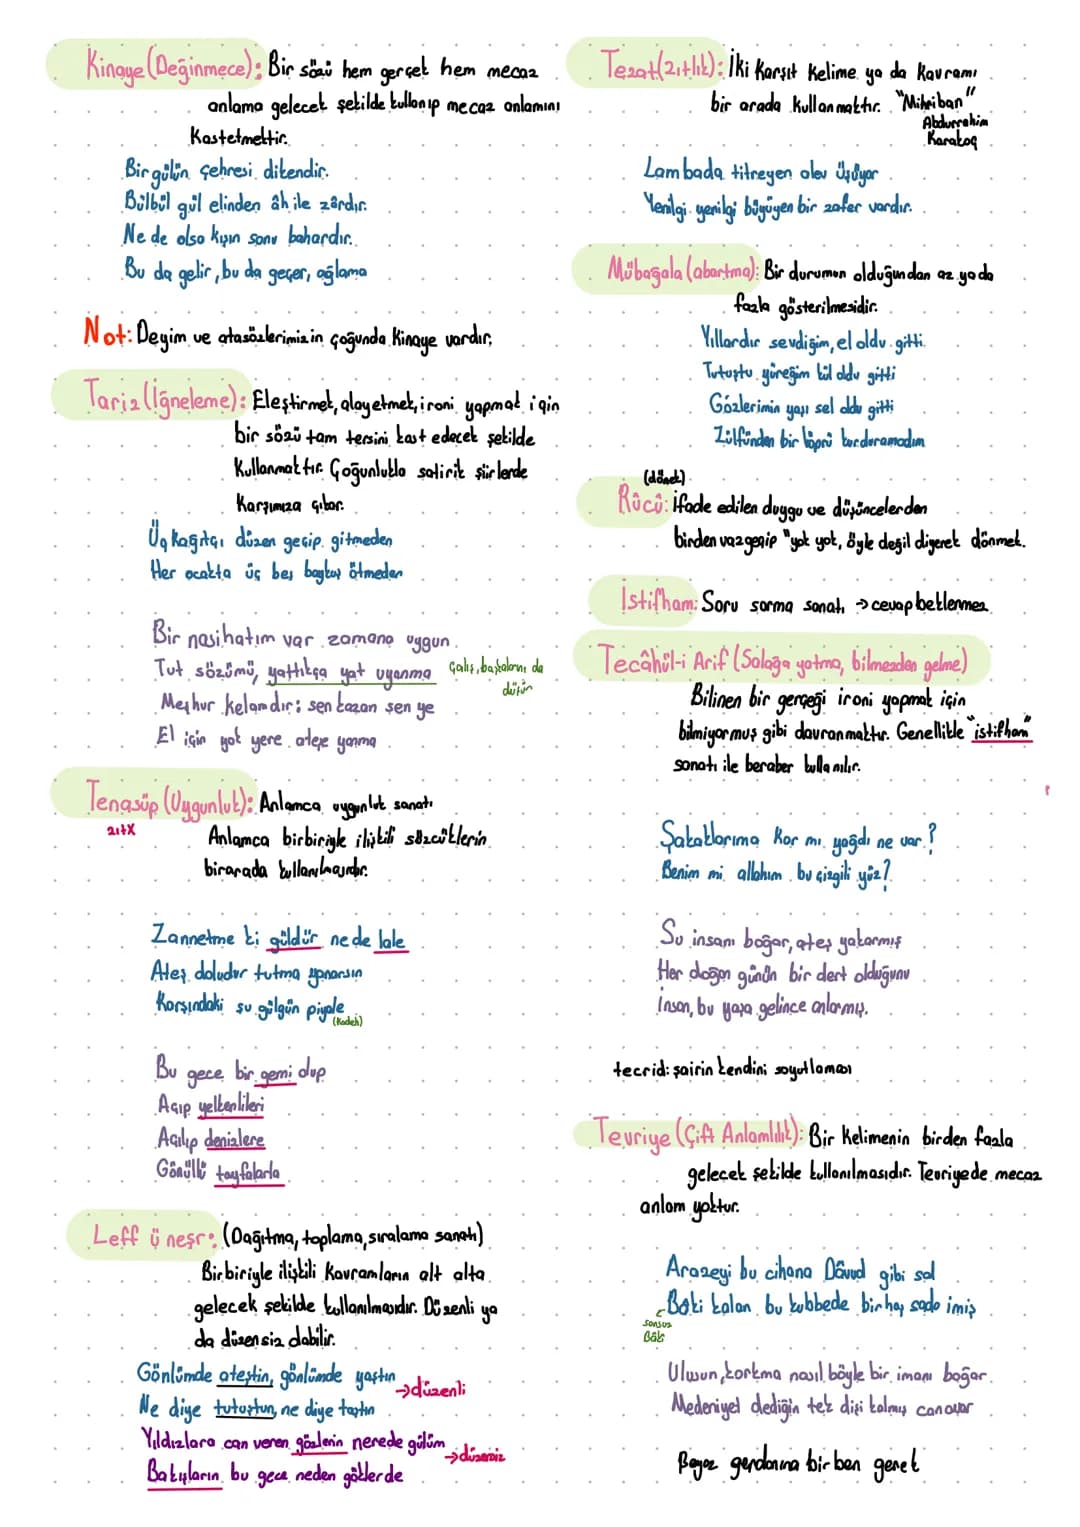 Kinaye (Değinmece): Bir sözü hem gerçek hem mecaz
anlama gelecek şekilde kullanıp mecaz anlamını
Kastetmektir.
Bir gülün çehresi dikendir.
Bülbül gül elinden âh ile zârdır.
Ne de olsa kışın sonu bahardır.
Bu da gelir, bu da geçer, ağlama
Not: Deyim ve atasözlerimizin çoğunda Kinaye vardır.
Tariz (İğneleme): Eleştirmek, alay etmek, ironi yapmak için
bir sözü tam tersini kast edecek şekilde
Kullanmaktır. Çoğunlukla satirik şiirlerde
Karşımıza çıkar.
Üç kağıtçı düzen geçip gitmeden
Her ocakta üç beş baykuş ötmeden
Bir nasihatım var zamana uygun
Tut sözümü, yattıkça yat uyanma
Çalış, başkalarını da
düşün
Meşhur kelamdır; sen kazan sen ye
El için yok yere ateşe yanma
Tenasüp (Uygunluk): Anlamca uygunluk sanatı
zıtX
Anlamca birbiriyle ilişkili sözcüklerin
birarada kullanılmasıdır.
Zannetme ki güldür ne de lale
Ateş doludur tutma yanarsın
Karşındaki şu gülgün piyale
(Kadeh)
Bu gece bir gemi olup
Açıp yelkenlileri
Açılıp denizlere
Gönüllü tayfalarla
Leff ü neşr: (Dağıtma, toplama, sıralama sanatı)
Birbiriyle ilişkili Kavramların alt alta
gelecek şekilde kullanılmasıdır. Düzenli ya
da düzensiz olabilir.
Gönlümde ateştin, gönlümde yaştın
→düzenli
Ne diye tutuştun, ne diye taştın
Yıldızlara can veren gözlerin nerede gülüm
→düzensiz
Bakışların bu gece neden göklerde
Tezat (zıtlık): İki Karşıt Kelime ya da Kavramı
bir arada Kullanmaktır. "Mihriban"
Abdurrahim
Karakoç
Lambada titreyen alev üşüyor
Yenilgi yenilgi büyüyen bir zafer vardır.
Mübağala (abartma): Bir durumun olduğundan az ya da
fazla gösterilmesidir.
Yıllardır sevdiğim, el oldu gitti
Tutuştu yüreğim kül oldu gitti
Gözlerimin yaşı sel oldu gitti
Zülfünden bir köprü kurduramadım
(dönek)
Rücû: İfade edilen duygu ve düşüncelerden
birden vazgeçip "yok yok, öyle değil diyerek dönmek.
İstifham: Soru sorma sanatı → cevap beklenmez
Tecâhül-i Arif (Salağa yatma, bilmezden gelme)
Bilinen bir gerçeği ironi yapmak için
bilmiyormuş gibi davranmaktır. Genellikle "istifham"
sanatı ile beraber kullanılır.
Şakaklarıma Kar mı yağdı ne var?
Benim mi allahım bu çizgili yüz?
Su insanı boğar, ateş yakarmış
Her doğan günün bir dert olduğunu
İnsan, bu yaşa gelince anlarmış.
tecrid: şairin kendini soyutlaması
Tevriye (Çift Anlamlılık): Bir Kelimenin birden fazla
gelecek şekilde kullanılmasıdır. Tevriyede mecaz
anlam yoktur.
Avazeyi bu cihana Dâvud gibi sal
Bâki kalan bu kubbede bir hoş sada imiş
sonsuz
Bâki
Ulusun, korkma nasıl böyle bir imanı boğar
Medeniyet dediğin tek dişi kalmış canavar
Beyaz gerdanına bir ben gerek